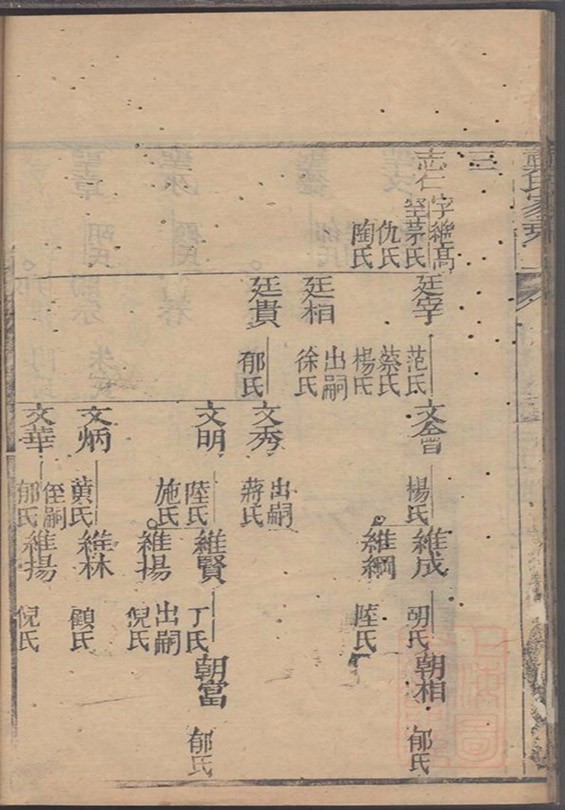 三
志仁
字繼高
室茅氏
仇氏
陶氏
廷宰
范氏
蔡氏
楊氏
廷相
出嗣
徐氏
廷貴
郁氏
文會
楊氏
文秀
出嗣
蔣氏
文明
陸氏
施氏
文炳
黄氏
文華
侄嗣
郁氏
維成
胡氏
維綱
陸氏
維賢
丁氏
維揚
出嗣
倪氏
維林
顧氏
維揚
倪氏
朝相
郁氏
朝當
郁氏